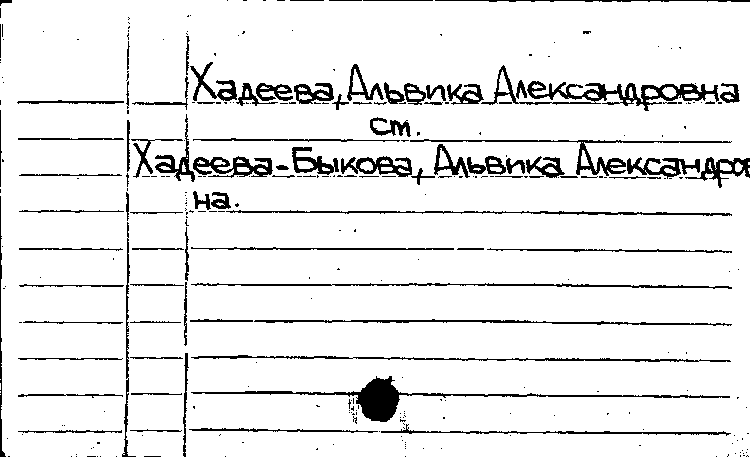 Хадеева, Альвика Александровна
ст.
Хадеева-Быкова, Альвика Александров
на.